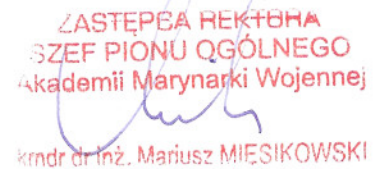 ZASTĘPCA REKTORA
SZEF PIONU OGÓLNEGO
Akademii Marynarki Wojennej
kmdr dr inż. Mariusz MIĘSIKOWSKI